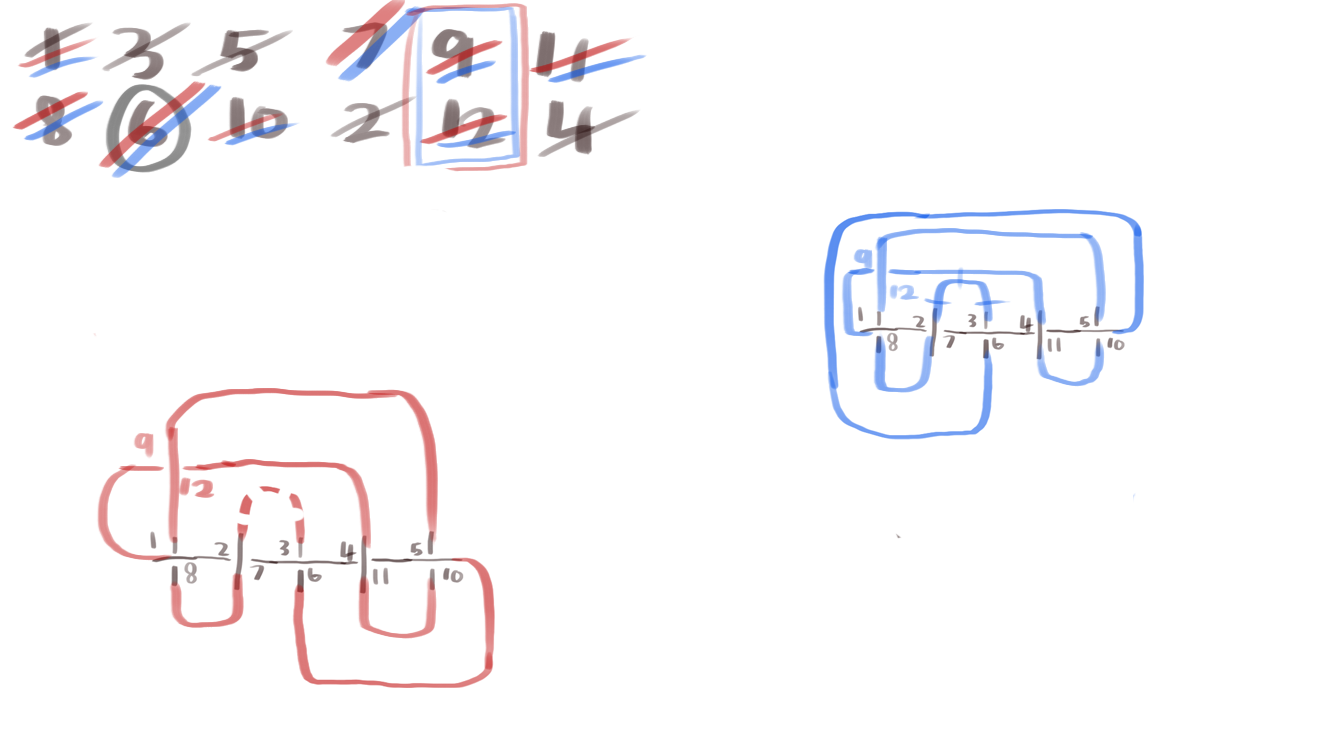 1 3 5 7 9 11
8 6 10 2 12 4
9
12
1 2 3 4 5
8 7 6 11 10
9
12
1 2 3 4 5
8 7 6 11 10